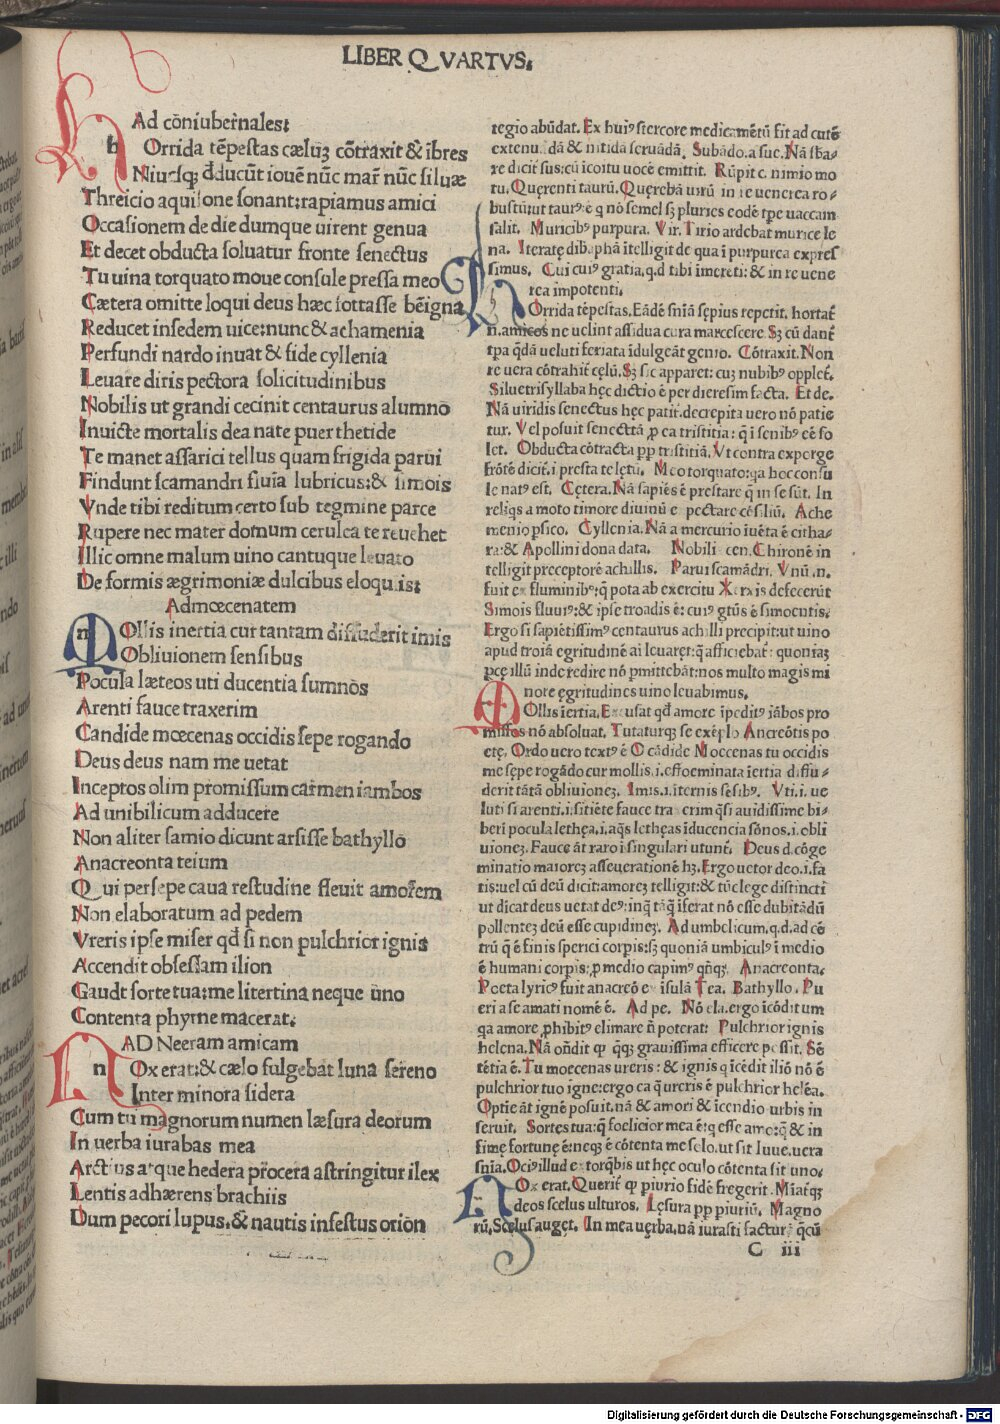 LIBER QVARTVS.
Ad cōniubeŕnales:
h Orrida tēpestas cæluʒ cōtraxit & ībres
Niuesqʒ đducūt iouē nūc mar̄ nūc siluæ
Threicio aquilone sonant:rapiamus amici
Occasionem de die dumque uirent genua
Et decet obducta soluatur fronte senectus
Tu uina torquato moue consule pressa meo
Cætera omitte loqui deus hæc fortasse bēigna
Reducet insedem uice:nunc & achamenia
Perfundi nardo iuuat & fide cyllenia
Leuare diris pectora solicitudinibus
Nobilis ut grandi cecinit centaurus alumno
Inuicte mortalis dea nate puer thetide
Te manet assarici tellus quam frigida parui
Findunt scamandri fluuia lubricus:& simois
Vnde tibi reditum certo sub tegmine parce
Rupere nec mater domum cerulea te reuehet
Illic omne malum uino cantuque leuato
De formis ægrimoniæ dulcibus eloquiis:
Admœcenatem
m Ollis inertia cur tantam diffuderit imis
Obliuionem sensibus
Pocula læteos uti ducentia sumnōs
Arenti fauce traxerim
Candide mœcenas occidis sepe rogando
Deus deus nam me uetat
Inceptos olim promissum carmen iambos
Ad unibilicum adducere
Non aliter samio dicunt arsisse bathyllo
Anacreonta teium
Qui persepe caua restudine fleuit amorem
Non elaboratum ad pedem
Vreris ipse miser qđ si non pulchrior ignis
Accendit obsessam ilion
Gaude sorte tua:me litertina neque uno
Contenta phyrne macerat:
AD Neeram amicam
n Ox erat:& cælo fulgebat luna sereno
Inter minora sidera
Cum tu magnorum numen læsura deorum
In uerba iurabas mea
Arctius atque hedera procera astringitur ilex
Lentis adhærens brachiis
Dum pecori lupus.& nautis infestus orion
regio abūdat. Ex hui⁹ stercore medicamētū fit ad cutē
extenuādā & nitidā seruādā. Subādo.a sue. Nā suba-
re dicit̄ sus:cū icoitu uocē emittit. Rūpit c. nimio mo
tu. Quęrenti taurū. Quęrebā uirū in re uenerea ro-
bustū:ut taur⁹:ē q nō semel sʒ pluries eodē tpe uaccam
salit. Muricib⁹ purpura. Vir.Tirio ardebat murice le
na. Iteratę dibapha ītelligit de qua ī purpurea expres
simus. Cui cui⁹ gratia.q.d tibi īmereti:& in re uene
rea impotenti.
Orrida tēpestas.Eādē sniā sępius repetit. hortat̄
.n.amicos ne uelint assidua cura marcescere.Sʒ cū dant̄
tpa qdā ueluti feriata īdulgeāt genio. Cōtraxit. Non
re uera cōtrahit̄ cęlū.Sʒ sic apparet: cuʒ nubib⁹ opplet̄.
Siluetrisyllaba hęc dictio ē per dieresim facta. Et de.
Nā uiridis senectus hęc patit̄.decrepita uero nō patie
tur. Vel posuit senecttā ꝓ ea tristitia: q̄ ī senib⁹ eē so
let. Obducta cōtracta pp tristitiā. Vt contra exporge
frōtē dicit̄.i presta te lętū. Meo torquato:qa hoc consu
le nat⁹ est. Cętera.Nā sapiēs ē prestare q̄ in se sūt. In
reliqs a moto timore diuinū expectare cōsiliū. Ache
menio psico. Cyllenia.Nā a mercurio iuēta ē citha
ra:& Apollini dona data. Nobili cen.Chironē in
telligit preceptorē achillis. Parui scamādri. Vnū .n.
fuit ex fluminib⁹:q̄ pota ab exercitu Xerxis defecerūt
Simois fluui⁹:& ipse troadis ē: cui⁹ gtūs ē simoentis.
Ergo si sapiētissim⁹ centaurus achilli precipit:ut uino
apud troiā egritudinē ai leuaret:q̄ afficiebat̄: quoniaʒ
pcę illū inde redire nō pmittebāt:nos multo magis mi
note ęgritudines uino leuabimus.
Ollis īertia.Excusat qđ amore īpedit⁹ iābos pro
missos nō absoluat. Tutaturqʒ se exēplo Ancreōtis po
etę. Ordo uero text⁹ ē O cādide Moecenas tu occidis
me sępe rogādo cur mollis.i.effoeminata īertia diffu-
derit tātā obliuionez. Imis.i.īternis sēsib⁹. Vti.i.ue
luti si arenti.i.sitiēte fauce traxerim q̄si auidissime bi-
beri pocula lethęa.i.aq̄s lethęas īducencia sōnos.i.obli
uionez. Fauce āt raro ī singulari utunt̄. Deus d.cōge
minatio maiorez asseuerationē hʒ. Ergo uetor deo.i.fa
tis:uel cū deū dicit:amorez ītelligit:& tūc lege distincti
ut dicat deus uetat de⁹:inq̄ tāq̄ īferat nō esse dubitādū
pollentez deū esse cupidinez. Ad umbelicum.q.d.ad cē
trū q̄ ē finis sperici corpis:sʒ quoniā umbicul⁹ ī medio
ē humani corpis:ꝓ medio capim⁹ qn̄qʒ. Anacreonta.
Poeta lyric⁹ fuit anacreō ex īsulā Tea. Bathyllo. Pu
eri a se amati nomē ē. Ad pe. Nō ela.ergo īcōditum
qa amore ꝓhibit⁹ elimare n̄ poterat: Pulchrior ignis
helena. Nā on̄dit qp q̄qʒ grauissima efficere possit. Sē
tētia ē. Tu moecenas ureris: & ignis q īcēdit iliō nō ē
pulchrior tuo igne:ergo ea q̄ ureris ē pulchrior heleā.
Optie āt ignē posuit.nā & amori & īcendio urbis in
seruit. Sortes tua:q̄ foelicior mea ē:q esse amo:q̄ & in
fime fortunę ē:neqʒ ē cōtenta me solo.ut sit Iuue.uera
snia.Oci⁹ illud extorq̄bis ut hęc oculo cōtenta sit uno.
Ox erat. Querit̄ qp piurio fidē fregerit. Miat̄qʒ
deos scelus ulturos. Lesura pp piuriū. Magno
rū.Scelus auget. In mea uęrba.nā iurasti factur̄ q̄cū
C iii
Digitalisierung gefördert durch die Deutsche Forschungsgemeinschaft - DFG